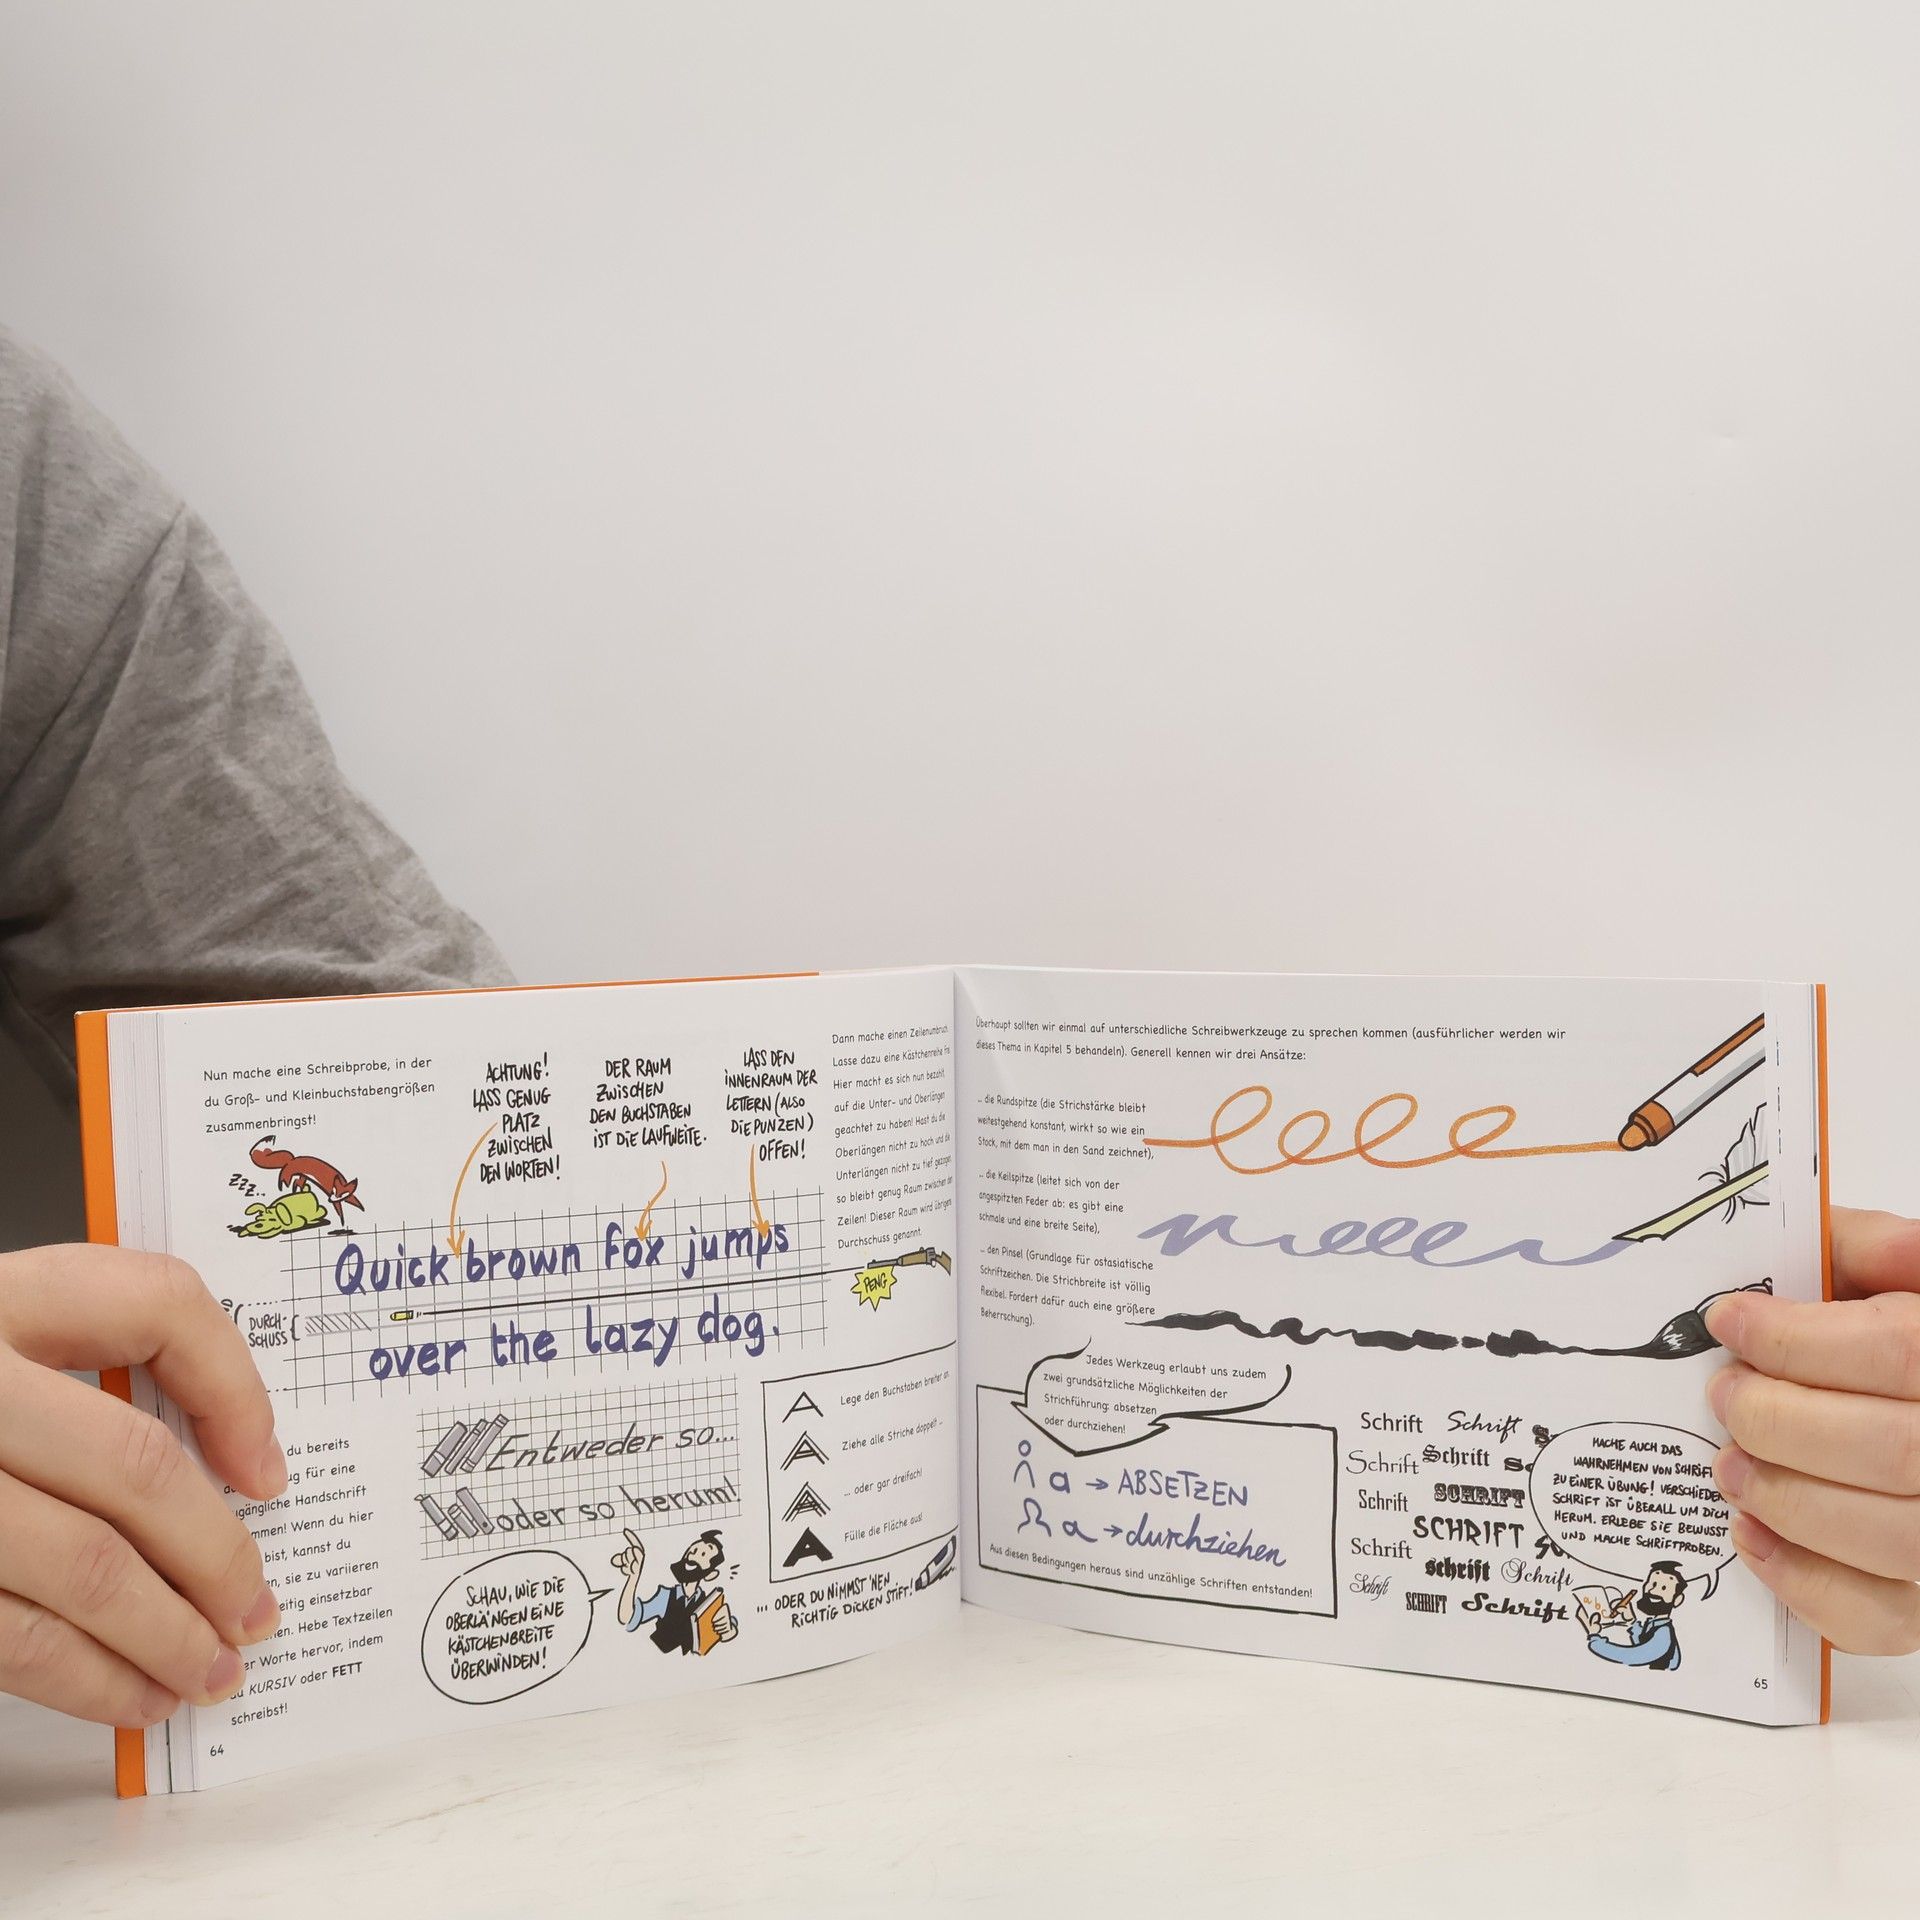 Nun mache eine Schreibprobe, in der
du Groß- und Kleinbuchstabengrößen
zusammenbringst!
ZZZ..
ACHTUNG!
LASS GENUG
PLATZ
ZWISCHEN
DEN WORTEN!
DER RAUM
ZWISCHEN
DEN BUCHSTABEN
IST DIE LAUFWEITE.
LASS DEN
INNENRAUM DER
LETTERN (ALSO
DIE PUNZEN)
OFFEN!
Dann mache einen Zeilenumbruch.
Lasse dazu eine Kästchenreihe
Hier macht es sich nun bezahlt,
auf die Unter- und Oberlängen
geachtet zu haben! Hast du die
Oberlängen nicht zu hoch und die
Unterlängen nicht zu tief gezogen,
so bleibt genug Raum zwischen den
Zeilen! Dieser Raum wird übrigens
Durchschuss genannt.
Quick brown fox jumps
over the lazy dog.
DURCH-
SCHUSS
PENG
du bereits
für eine
Handschrift
Wenn du hier
bist, kannst du
sie zu variieren
einsetzbar
Hebe Textzeilen
Worte hervor, indem
KURSIV oder FETT
schreibst!
Entweder so...
oder so herum!
SCHAU, WIE DIE
OBERLÄNGEN EINE
KÄSTCHENBREITE
ÜBERWINDEN!
Lege den Buchstaben breiter an.
Ziehe alle Striche doppelt ...
... oder gar dreifach!
Fülle die Fläche aus!
... ODER DU NIMMST 'NEN
RICHTIG DICKEN STIFT!
64
Überhaupt sollten wir einmal auf unterschiedliche Schreibwerkzeuge zu sprechen kommen (ausführlicher werden wir
dieses Thema in Kapitel 5 behandeln). Generell kennen wir drei Ansätze:
... die Rundspitze (die Strichstärke bleibt
weitestgehend konstant, wirkt so wie ein
Stock, mit dem man in den Sand zeichnet),
... die Keilspitze (leitet sich von der
angespitzten Feder ab: es gibt eine
schmale und eine breite Seite),
... den Pinsel (Grundlage für ostasiatische
Schriftzeichen. Die Strichbreite ist völlig
flexibel. Fordert dafür auch eine größere
Beherrschung).
Jedes Werkzeug erlaubt uns zudem
zwei grundsätzliche Möglichkeiten der
Strichführung: absetzen
oder durchziehen!
a → ABSETZEN
a → durchziehen
Aus diesen Bedingungen heraus sind unzählige Schriften entstanden!
Schrift Schrift
Schrift Schrift
Schrift SCHRIFT
SCHRIFT
Schrift schrift Schrift
Schrift SCHRIFT Schrift
MACHE AUCH DAS
WAHRNEHMEN VON SCHRIFT
ZU EINER ÜBUNG! VERSCHIEDENE
SCHRIFT IST ÜBERALL UM DICH
HERUM. ERLEBE SIE BEWUSST
UND MACHE SCHRIFTPROBEN.
abc
65